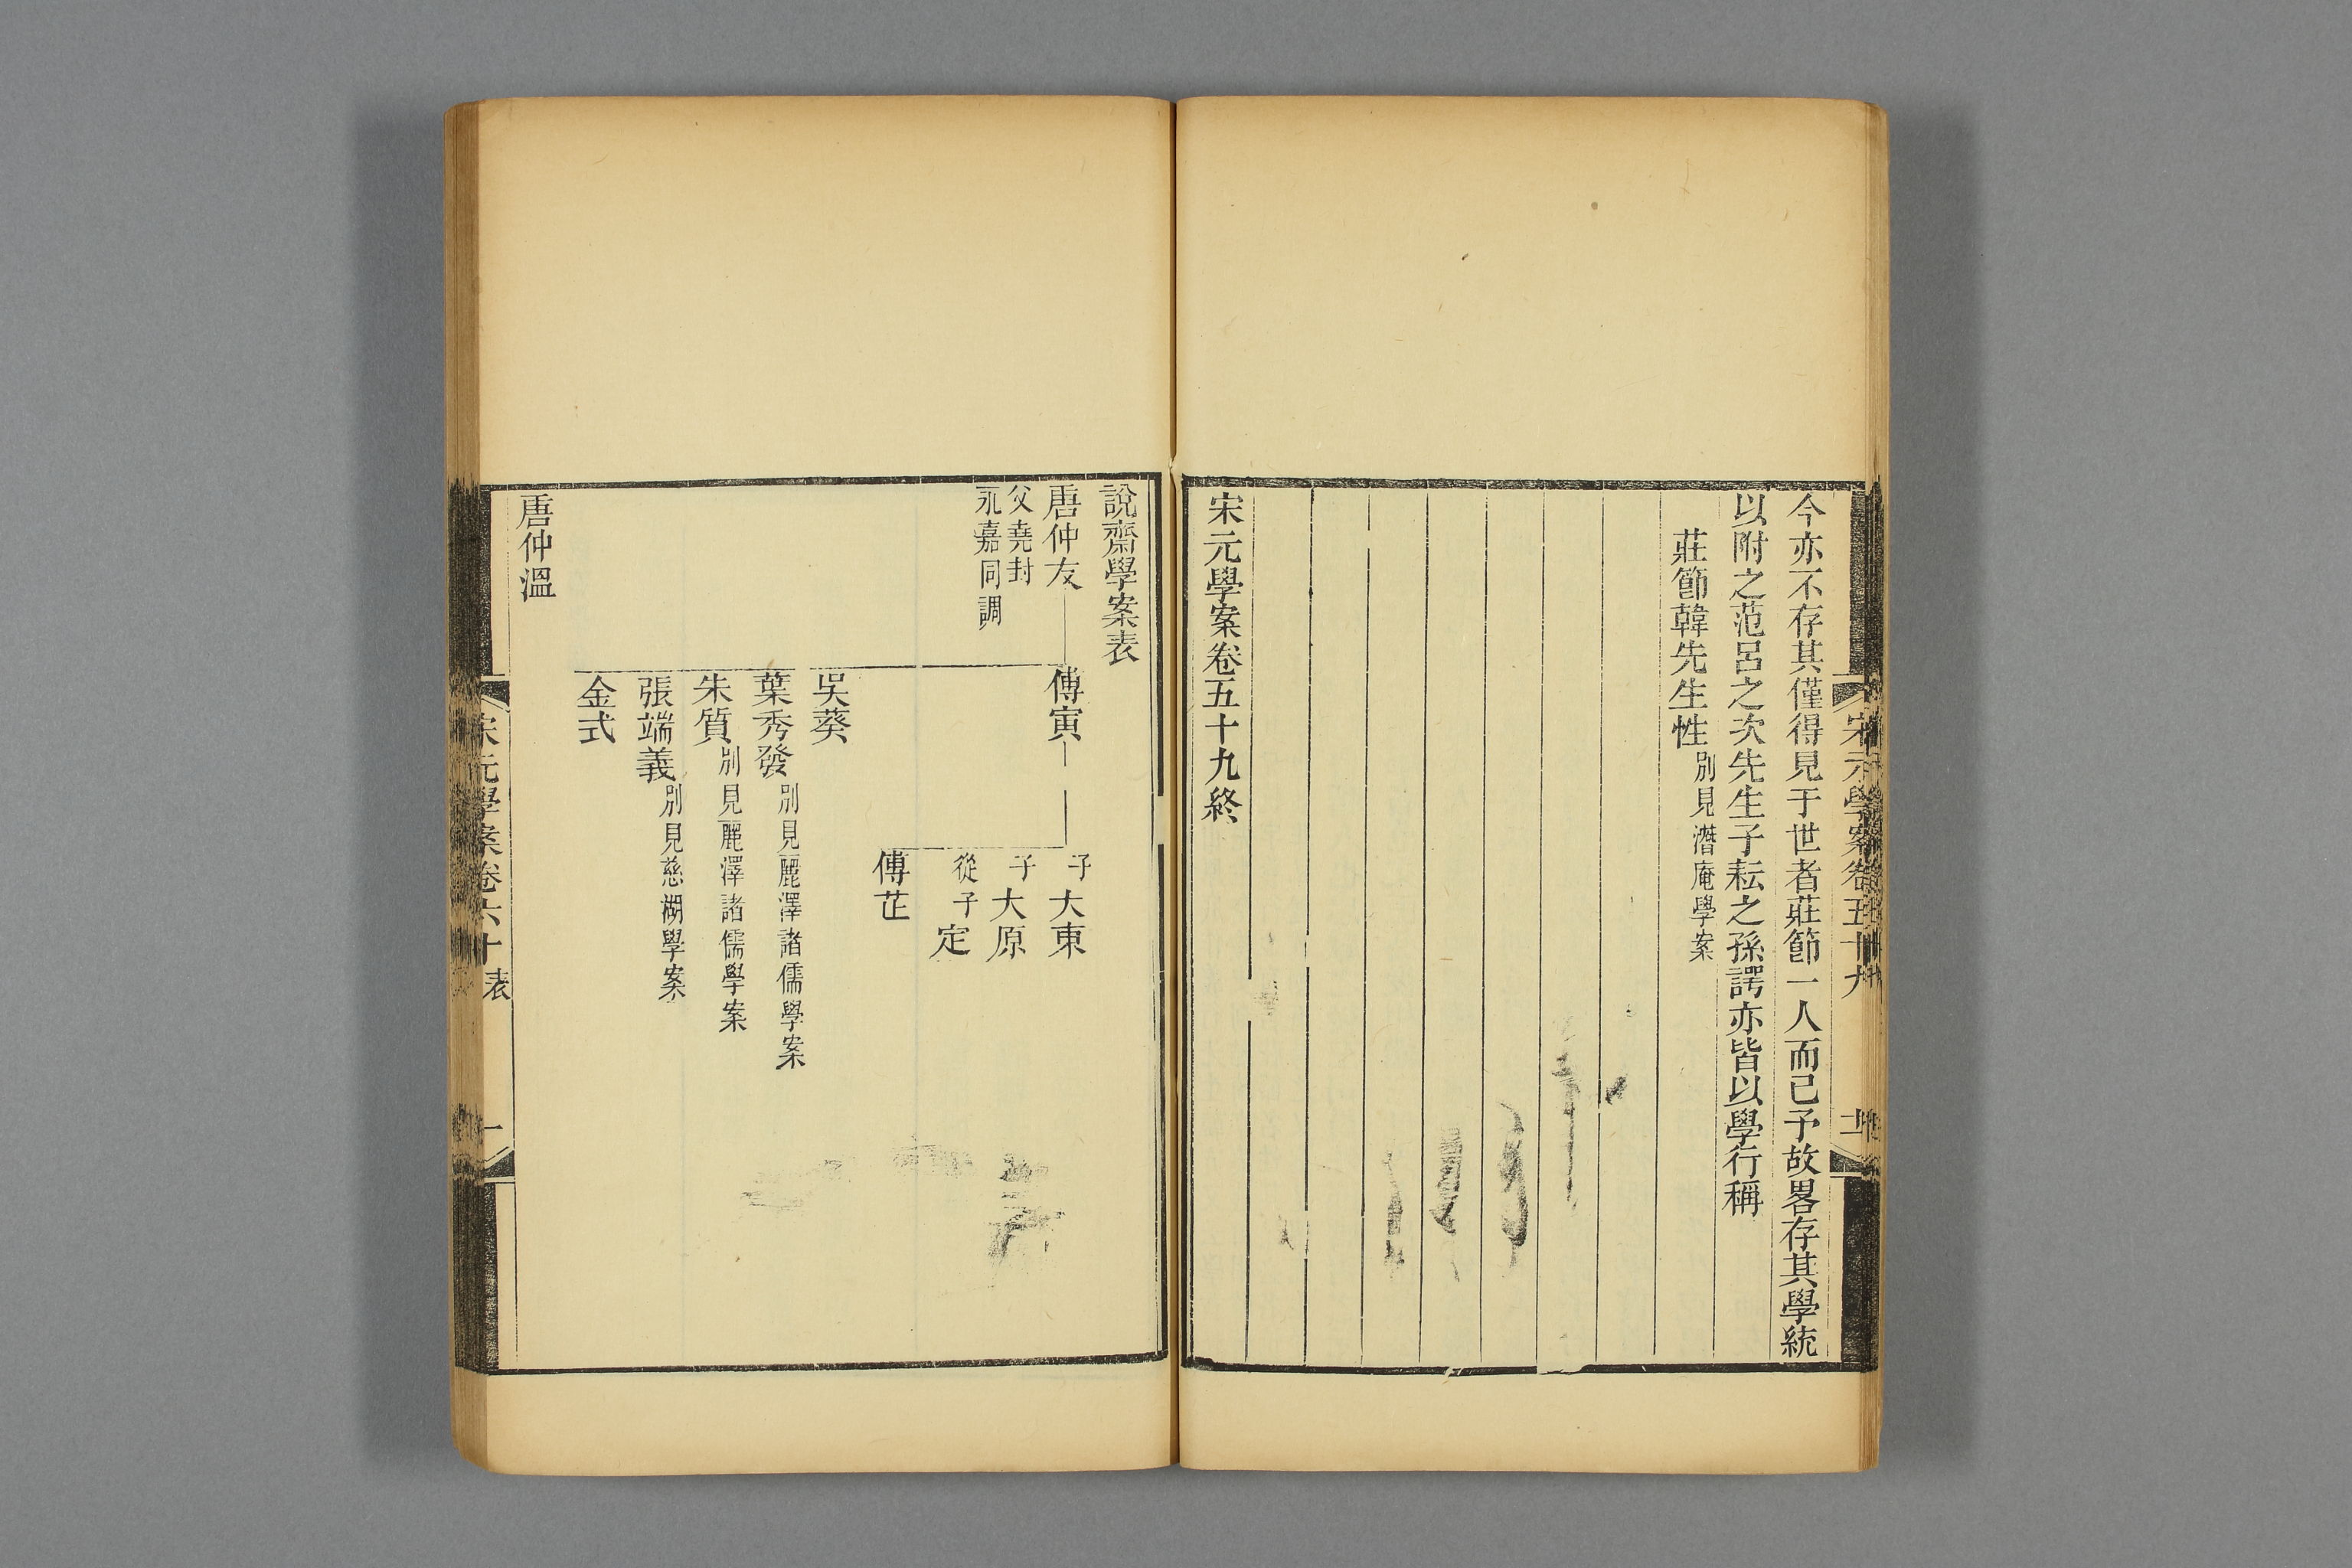 宋元學案卷五十九
今亦不存其僅得見于世者莊節一人而已予故畧存其學統
以附之范呂之次先生子耘之孫諤亦皆以學行稱
莊節韓先生性別見潛庵學案
宋元學案卷五十九終
說齋學案表
唐仲友
父堯封
永嘉同調
傅寅
子大東
子大原
從子定
傅芷
吳葵
葉秀發別見麗澤諸儒學案
朱質別見麗澤諸儒學案
張端義別見慈湖學案
金式
唐仲溫
宋元學案卷六十表
一